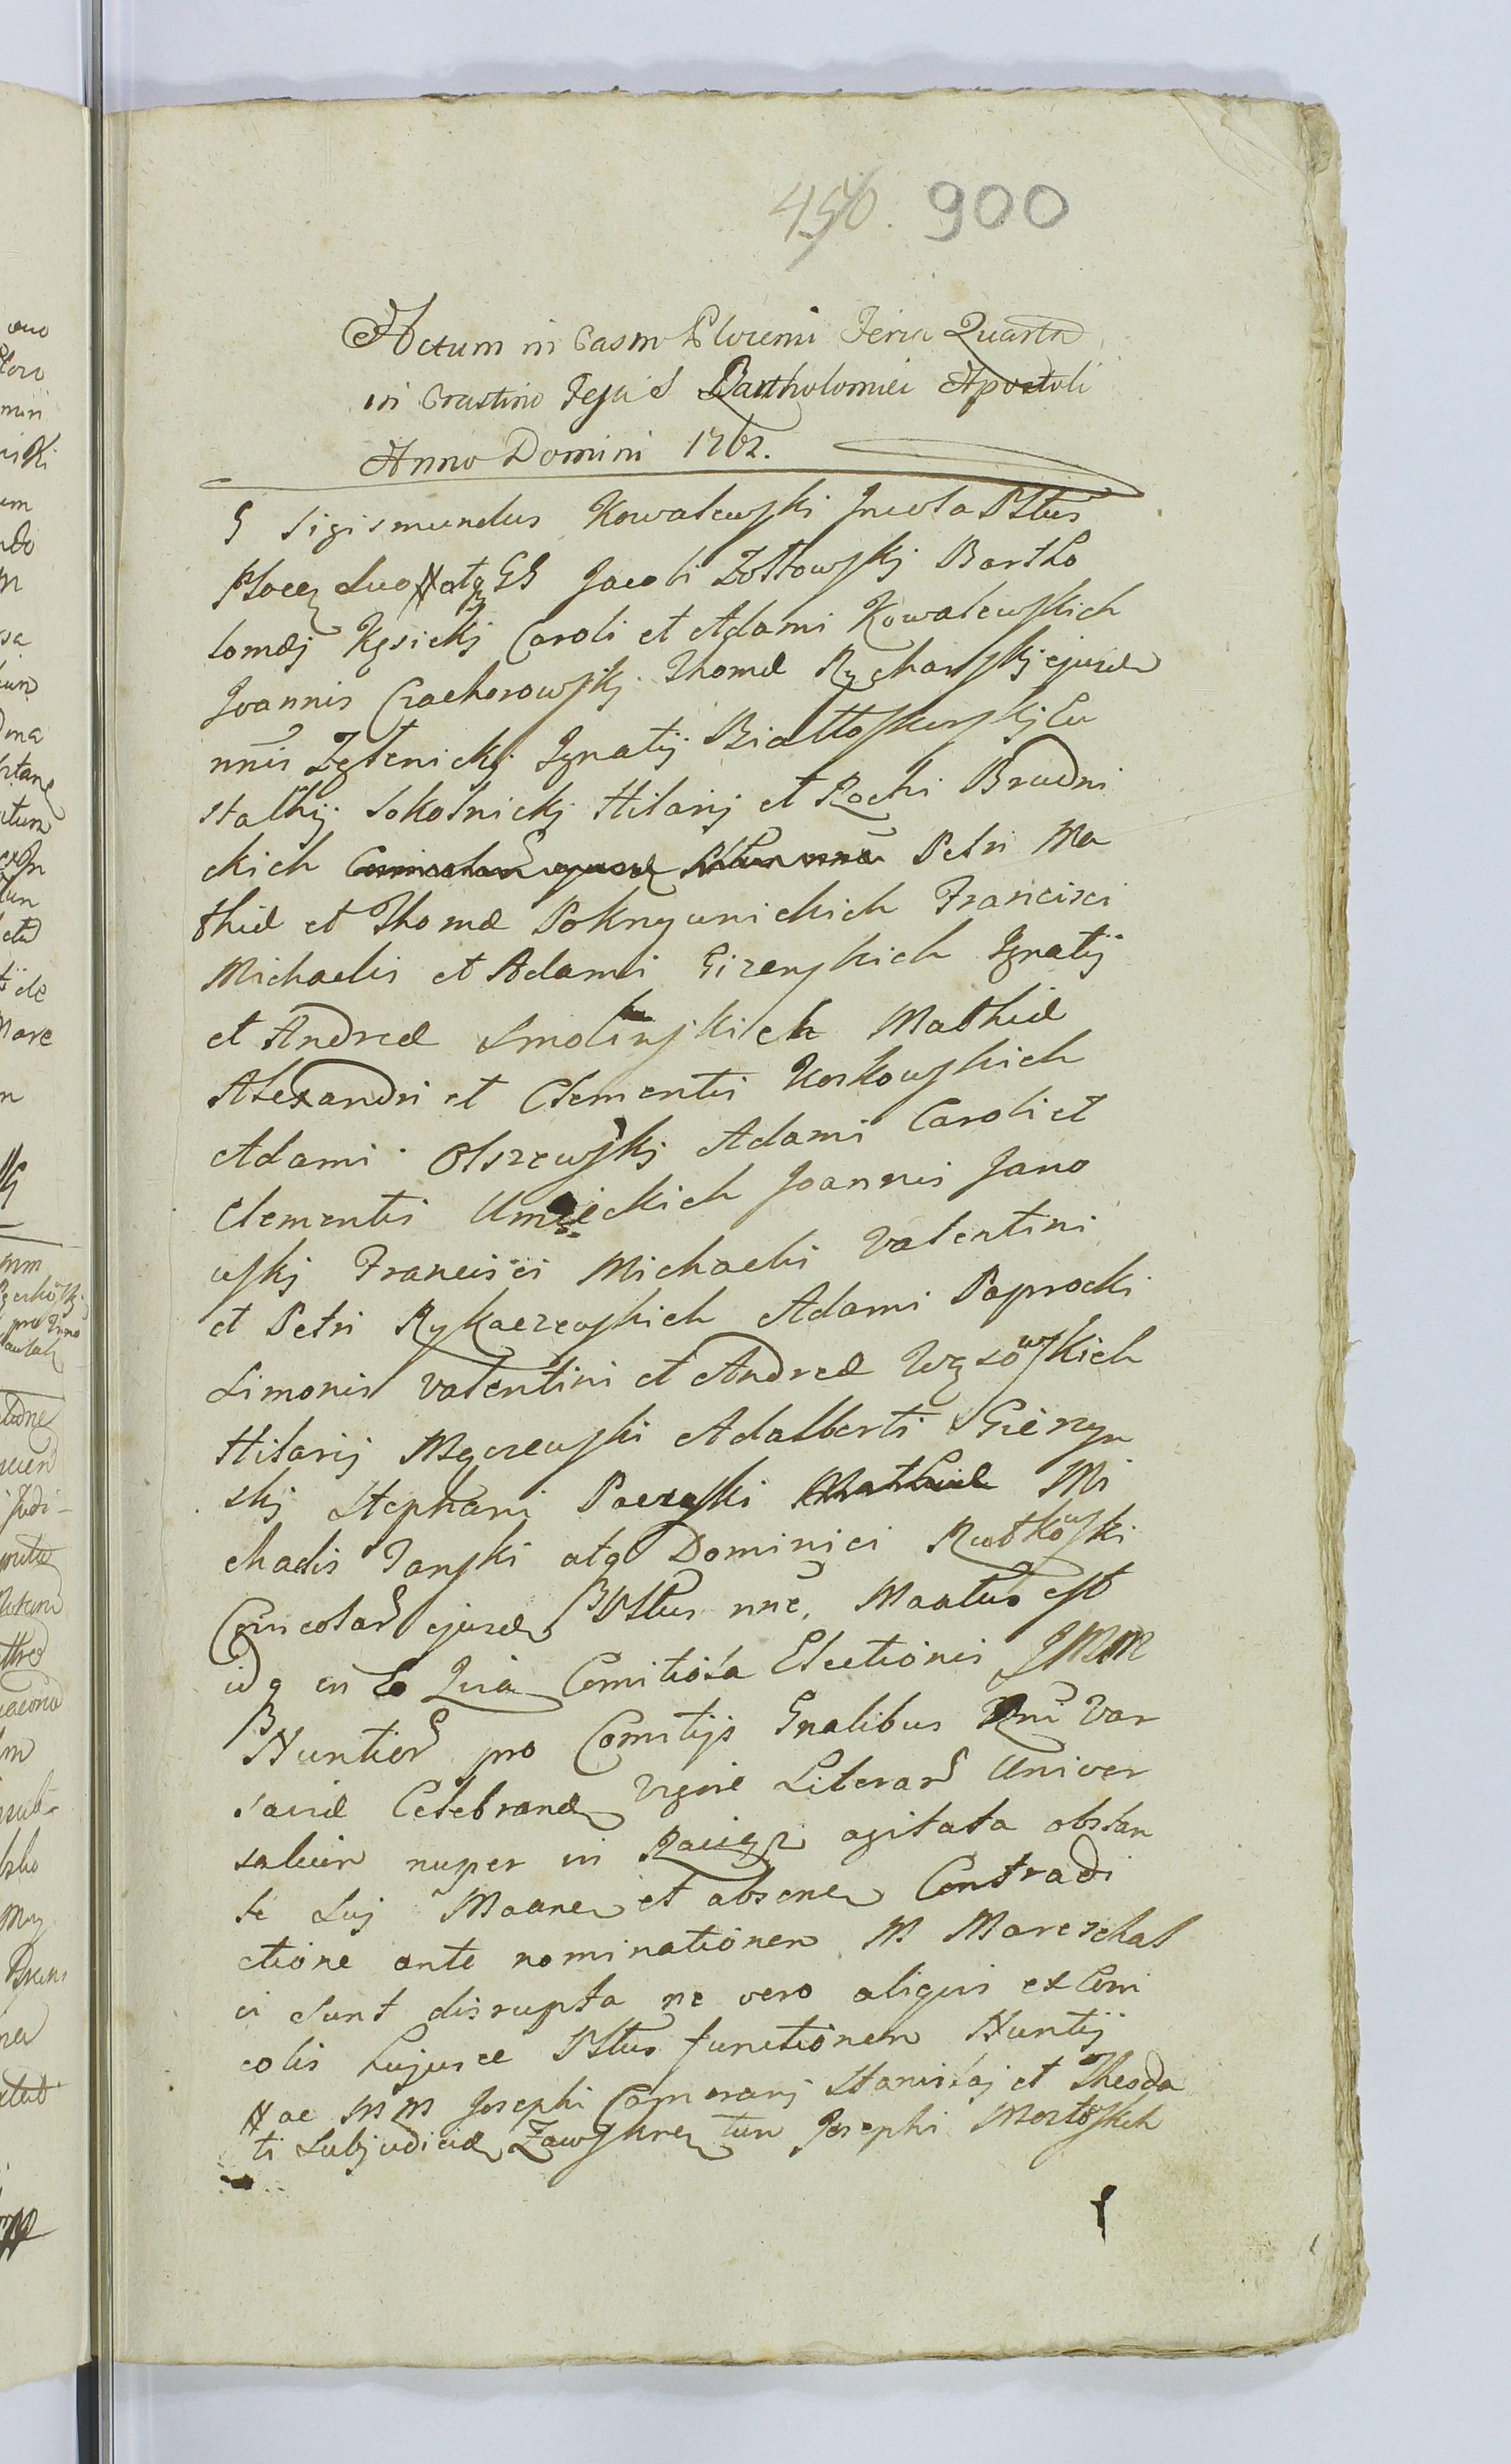 450. 900
Actum in Castro Plocensi Feria Quarta
in Crastino Festi S Bartholomæi Apostoli
Anno Domini 1762.
G Sigismundus Kowalewski Incola Pltus
Plocen Suo # atq GG Jacobi Zołtowskj Bartho
lomæj Kęsickj Caroli et Adami Kowalewskich
Joannis Czachorowskj Thomæ Rycharskj ejusd
nnis Zglenickj Ignatij Białłoskurskj Eu
stachij Sokolnickj Hilarij et Rochi Brudni
ckich Petri Ma
thiæ et Thomæ Pokrzywnickich Francisci
Michaelis et Adami Gizenskich Ignatij
et Andreæ Smolinskich Mathiæ
Alexandri et Clementis Koskowskich
Adami Olszewskj Adami Caroli et
Clementis Umieckich Joannis Jano
wskj Francisci Michaelis Valentini
et Petri Rykaczewskich Adami Paprocki
Simonis Valentini et Andreæ Węsowskich
Hilarij Męczewski Adalberti Gienzyn
skj Stephani Paczeski Mathiæ Mi
chaelis Janski atq Dominici Rutkowski
Comcolar ejusd Pltus nne. Mantus est
idq in Eo Quia Comitiola Electionis JMM
Nuntior pro Comitijs Gnalibus Rni Var
saviæ Celebrand Vigore Literar Univer
salium nuper in Raciąż agitata obstan
te Suj Maane et absene Contradi
ctione ante nominationem M Mareschal
ci sunt disrupta ne vero aliquis ex Com
colis hujusce Pltus functionem Nuntij
# ac MM Josephi Camerarij Stanislaj et Theodo
ti Subjudicid Zawskrzen tum Josephi Mostowskich